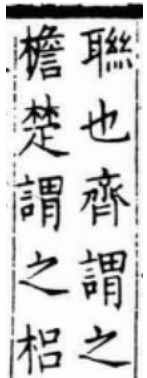 聯也齊謂之
檐楚謂之梠